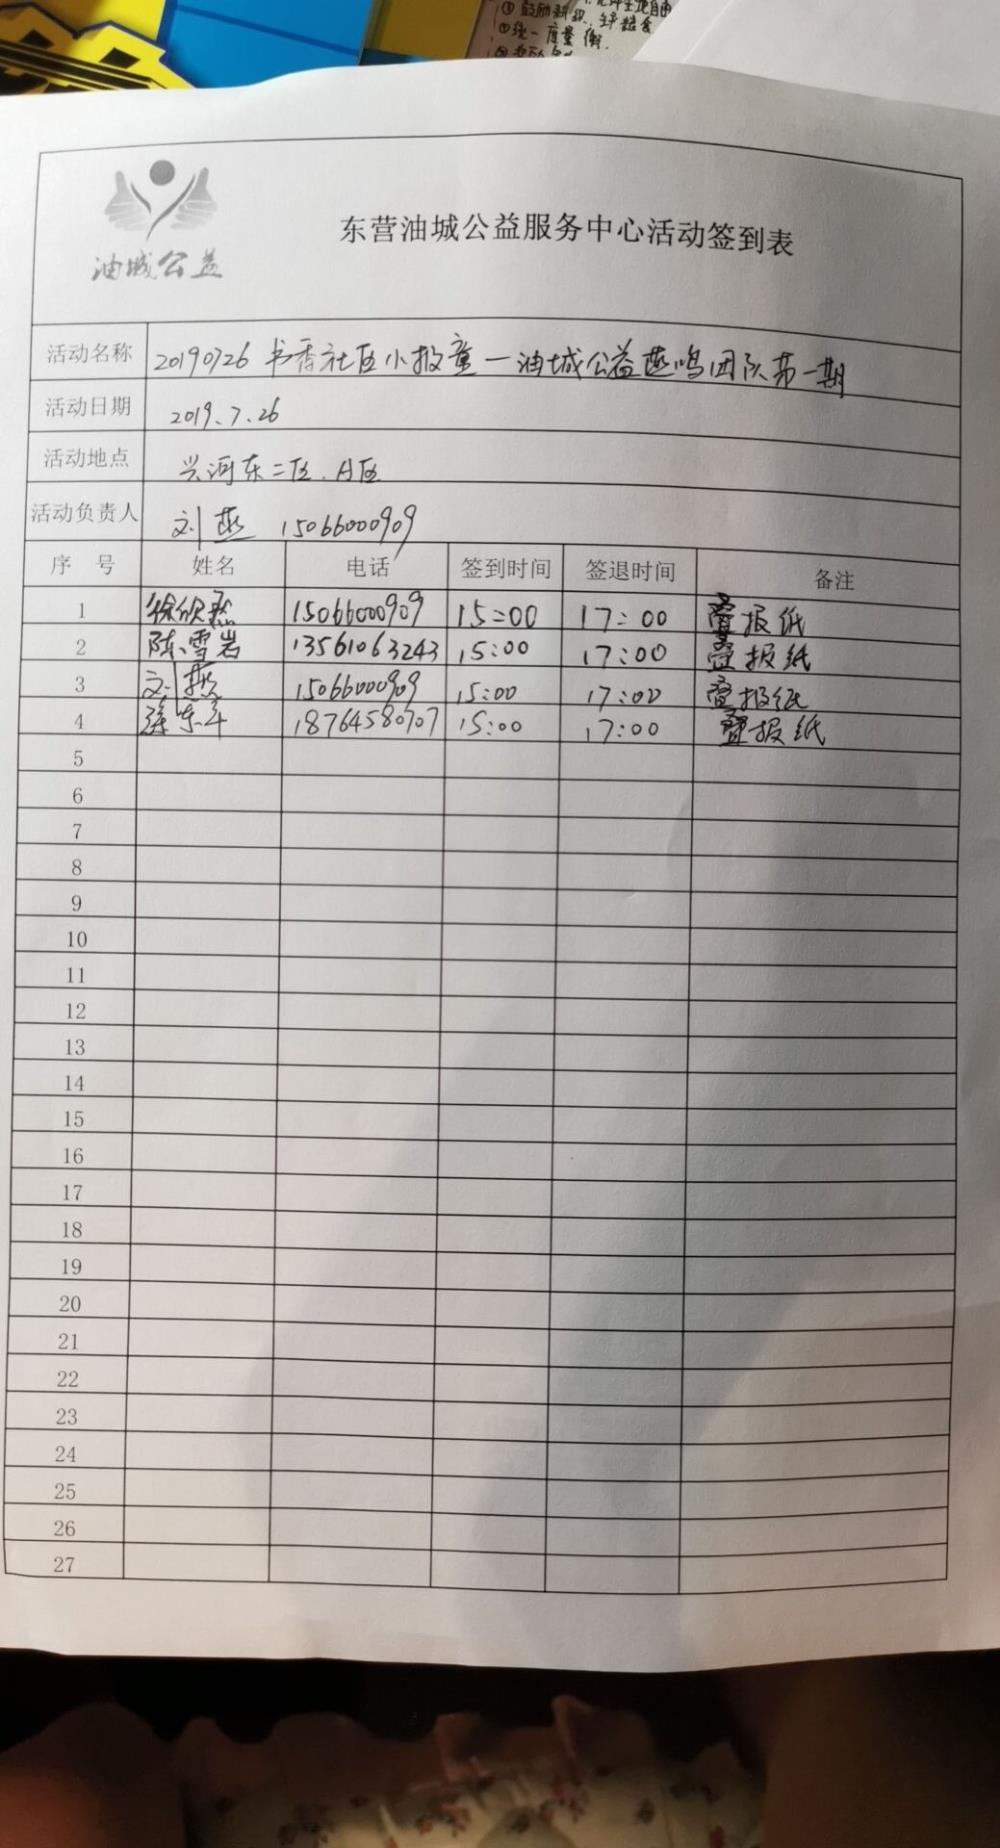 ①鼓励耕织,生产粮食
①统一度量衡.
油城公益
东营油城公益服务中心活动签到表
活动名称 20190726 书香社区小报童—油城公益燕鸣团队第一期
活动日期 2019.7.26
活动地点 兴河东二区.A区
活动负责人 刘燕 15066000909
序 号 姓名 电话 签到时间 签退时间 备注
1 徐欣然 15066000909 15:00 17:00 叠报纸
2 陈雪岩 13561063243 15:00 17:00 叠报纸
3 刘燕 15066000909 15:00 17:00 叠报纸
4 18764580707 15:00 17:00 叠报纸
5
6
7
8
9
10
11
12
13
14
15
16
17
18
19
20
21
22
23
24
25
26
27